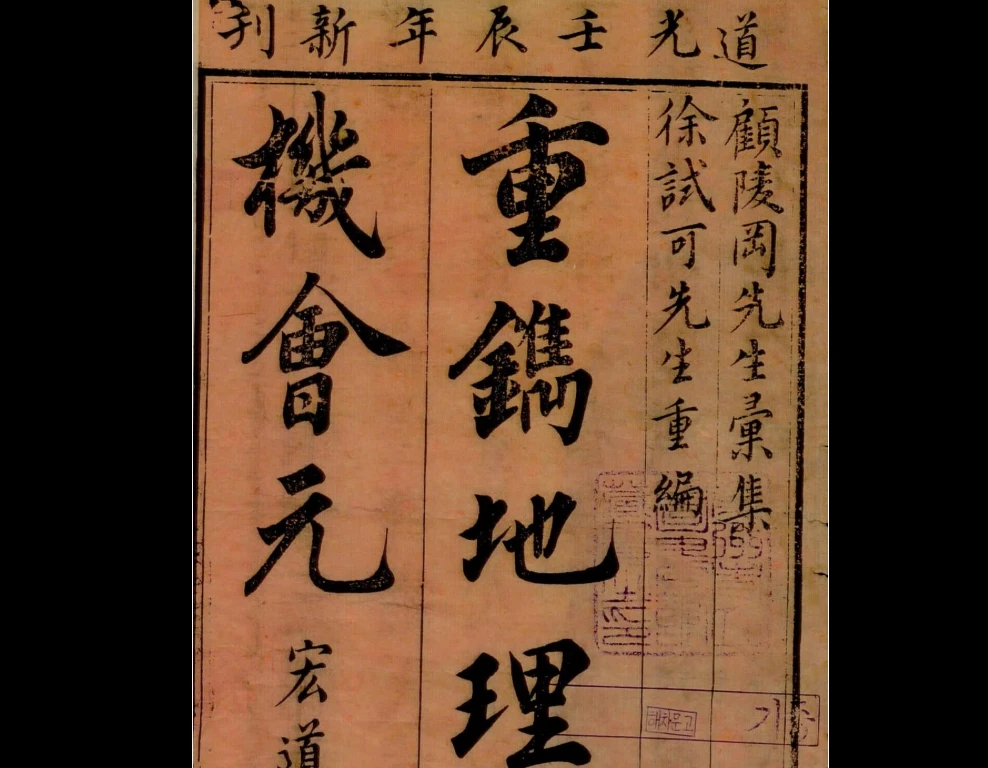 道光壬辰年新刊
顧陵岡先生彙集
徐試可先生重編
重鐫地理
機會元
宏道
기증
해차문고